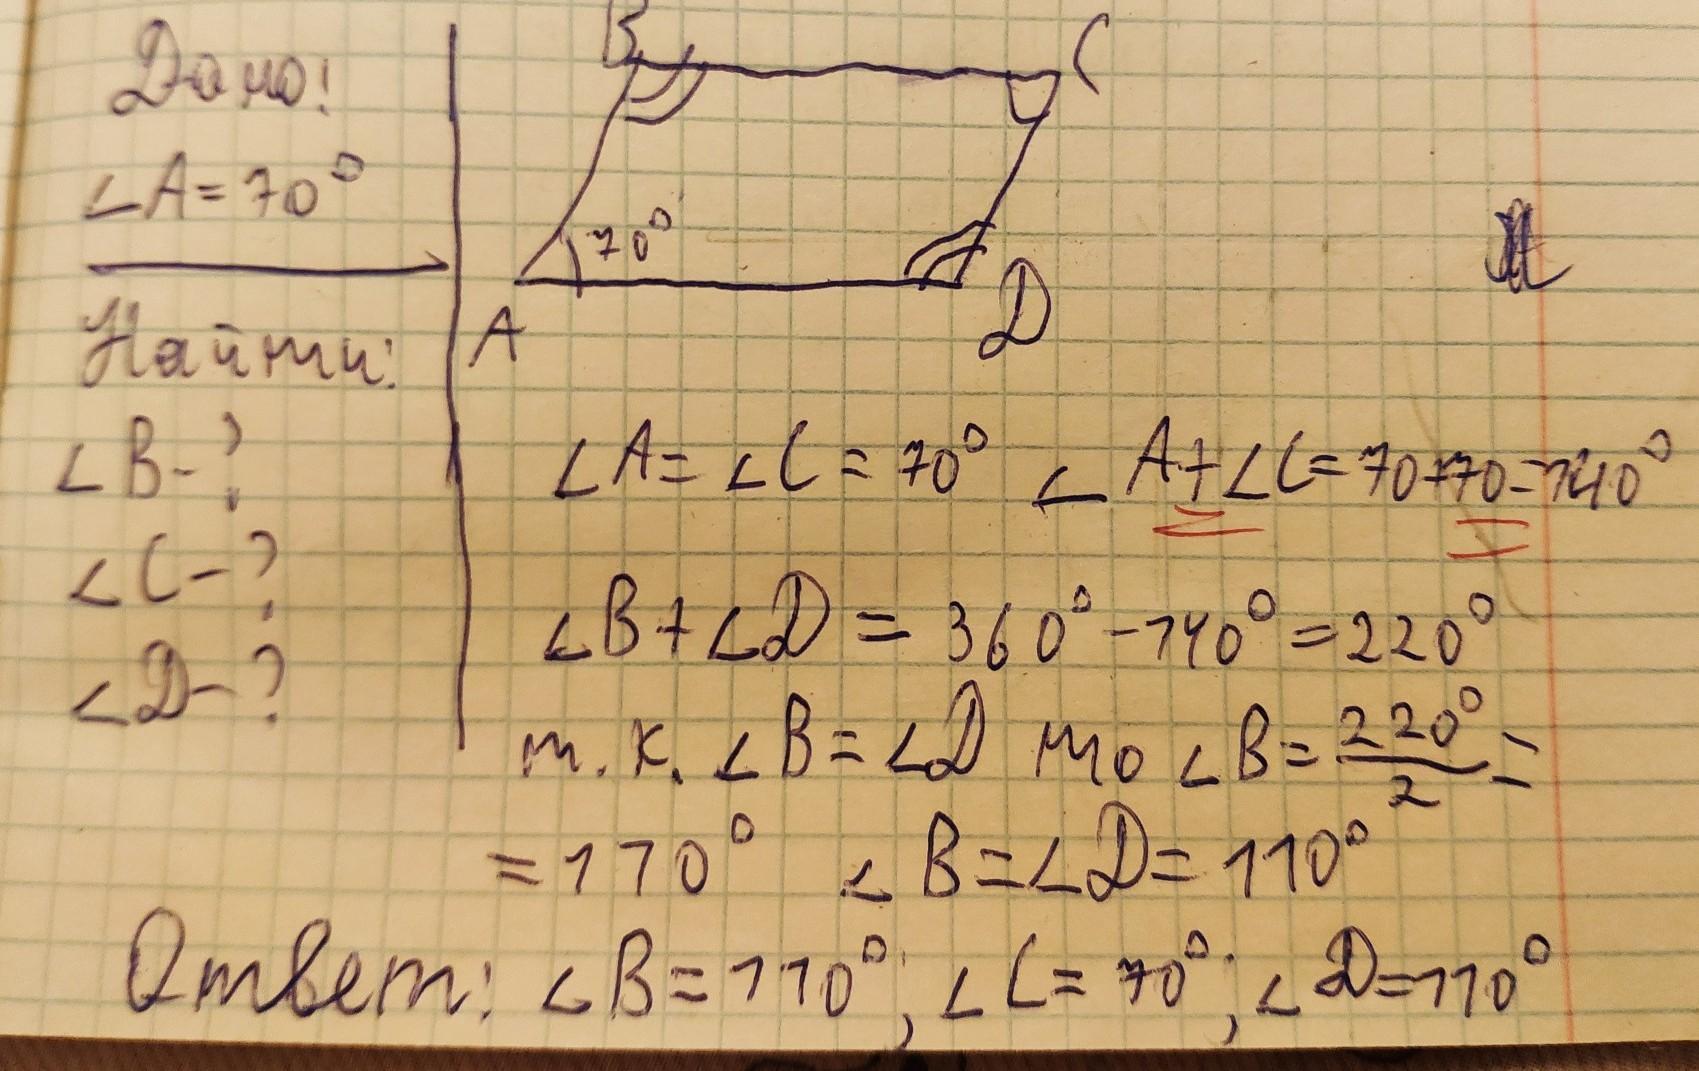 Дано:
∠A=70°
Найти:
∠B-?
∠C-?
∠D-?
B C
70°
A D
∠A=∠C=70° ∠A+∠C=70+70=140°
∠B+∠D=360°-140°=220°
т.к. ∠B=∠D то ∠B=220°/2=
=110° ∠B=∠D=110°
Ответ: ∠B=110°; ∠C=70°; ∠D=110°